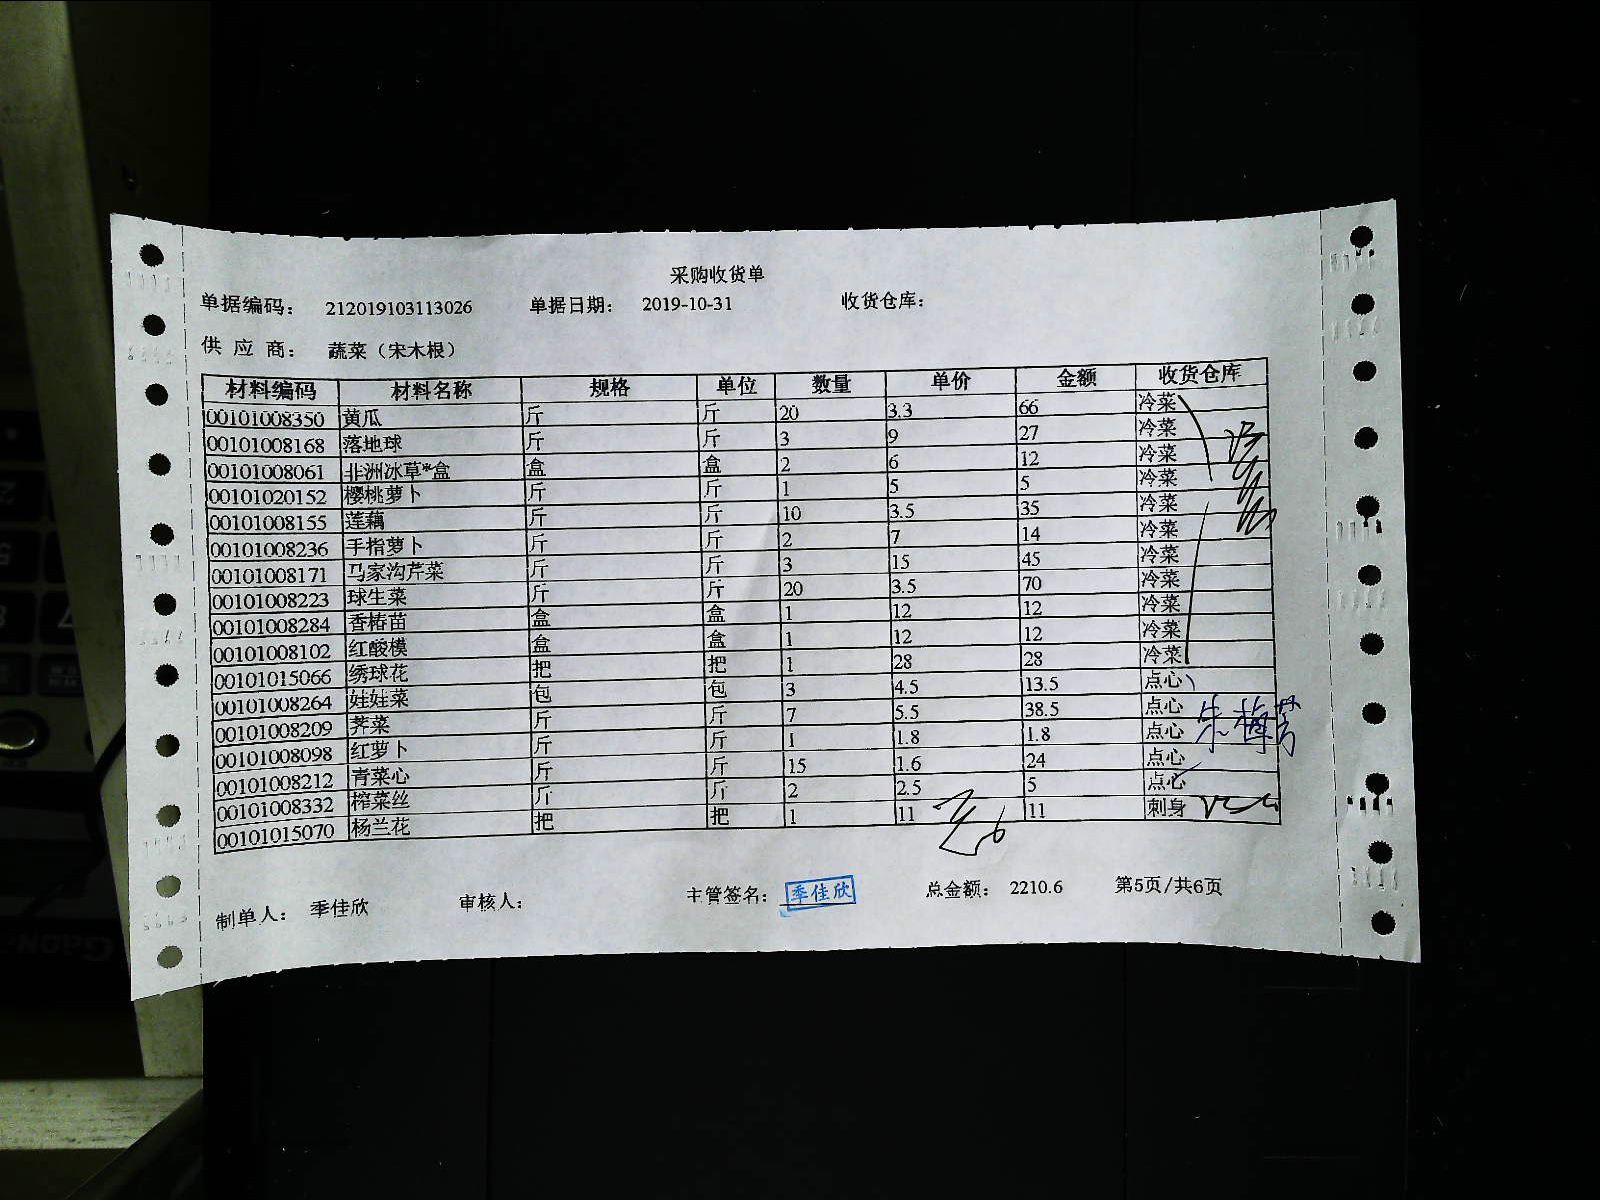 采购收货单
单据编码： 212019103113026 单据日期： 2019-10-31 收货仓库：
供 应 商： 蔬菜（宋木根）
材料编码 材料名称 规格 单位 数量 单价 金额 收货仓库
00101008350 黄瓜 斤 斤 20 3.3 66 冷菜
00101008168 落地球 斤 斤 3 9 27 冷菜
00101008061 非洲冰草*盒 盒 盒 2 6 12 冷菜
00101020152 樱桃萝卜 斤 斤 1 5 5 冷菜
00101008155 莲藕 斤 斤 10 3.5 35 冷菜
00101008236 手指萝卜 斤 斤 2 7 14 冷菜
00101008171 马家沟芹菜 斤 斤 3 15 45 冷菜
00101008223 球生菜 斤 斤 20 3.5 70 冷菜
00101008284 香椿苗 盒 盒 1 12 12 冷菜
00101008102 红酸模 盒 盒 1 12 12 冷菜
00101015066 绣球花 把 把 1 28 28 冷菜
00101008264 娃娃菜 包 包 3 4.5 13.5 点心
00101008209 荠菜 斤 斤 7 5.5 38.5 点心
00101008098 红萝卜 斤 斤 1 1.8 1.8 点心 朱梅芳
00101008212 青菜心 斤 斤 15 1.6 24 点心
00101008332 榨菜丝 斤 斤 2 2.5 5 点心
00101015070 杨兰花 把 把 1 11 11 刺身
制单人： 季佳欣 审核人： 主管签名： 季佳欣 总金额： 2210.6 第5页/共6页